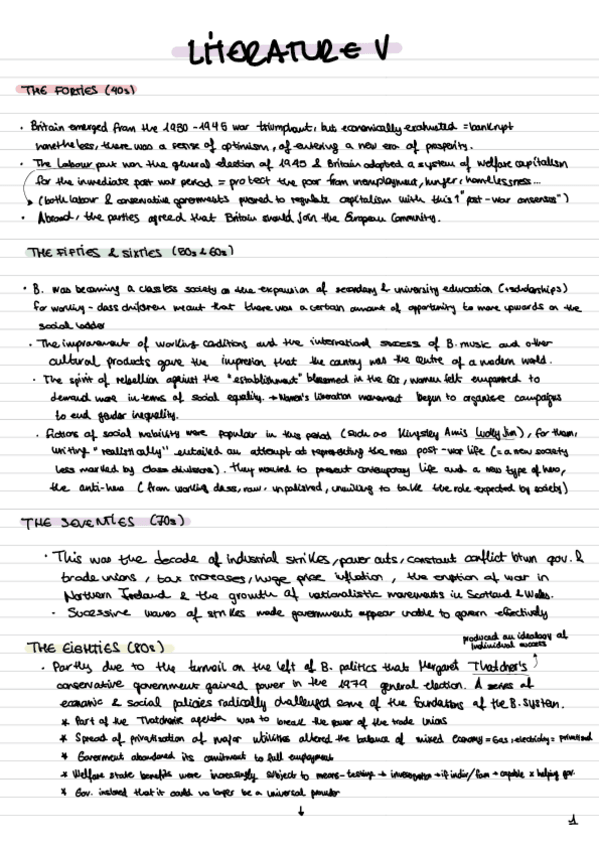 LITERATURE V
THE FORTIES (40s)
· Britain emerged from the 1930-1945 war triumphant, but economically exahusted = bankrupt
nonetheless, there was a sense of optimism, of entering a new era of prosperity.
· The Labour part won the general election of 1945 & Britain adopted a system of welfare capitalism
for the inmediate post war period = protect the poor from unemployment, hunger, homelessness...
(both labour & conservative goverments pursed to regulate capitalism with this 1 "post-war consensus")
· Abroad, the parties agreed that Britain should join the European Community.
THE FIFTIES & SIXTIES (50s & 60s)
· B. was becoming a classless society as the expansion of secondary & university education (+scholarships)
for working-class children meant that there was a certain amount of opportunity to move upwards on the
social ladder
· The improvement of working conditions and the international success of B. music and other
cultural products gave the impresion that the country was the centre of a modern world.
· The spirit of rebellion against the "establishment" blossomed in the 60s, women felt empowered to
demand more in terms of social equality. → Women's liberation movement begun to organise campaigns
to end gender inequality.
· Fictions of social mobility were popular in this period (such as Kingsley Amis Lucky Jim), for them,
writing "realistically" entailed an attempt at representing the new post-war life (= a new society
less marked by class divisions). They wanted to present contemporary life and a new type of hero,
the anti-hero (from working class, raw, unpolished, unwilling to take the role expected by society)
THE SEVENTIES (70s)
· This was the decade of industrial strikes, power cuts, constant conflict btwn gov. &
trade unions, tax increases, huge price inflation, the eruption of war in
Northern Ireland & the growth of nationalistic movements in Scotland & Wales.
· Sucessive waves of strikes made government appear unable to govern effectively
THE EIGHTIES (80s)
produced an ideology of
individual success
· Partly due to the turmoil on the left of B. politics that Margaret Thatcher's
conservative government gained power in the 1979 general election. A series of
economic & social policies radically challenged some of the foundations of the B. system.
* Part of the Thatcherite agenda was to break the power of the trade unions
* Spread of privatisation of major utilities altered the balance of mixed economy = Gas, electricity = privatised
* Goverment abandoned its comitment to full employment
* Welfare state benefits were increasingly subject to means-testing → investigation → if indiv/fam → capable x helping gov.
* Gov. insisted that it could no longer be a universal provider
↓
1